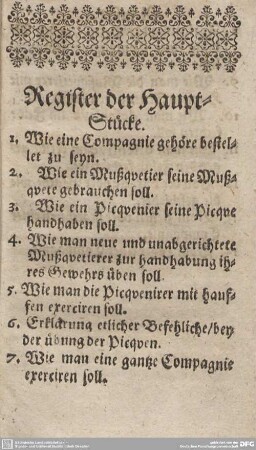 Register der Haupt-
Stücke.
1. Wie eine Compagnie gehöre bestel-
let zu seyn.
2. Wie ein Mußqvetier seine Muß-
qvete gebrauchen soll.
3. Wie ein Picqvenier seine Picqve
handhaben soll.
4. Wie man neue und unabgerichtete
Mußqvetierer zur handhabung ih-
res Gewehrs üben soll.
5. Wie man die Picqvenirer mit hauf-
fen exerciren soll.
6. Erklärung etlicher Befehliche/bey
der übung der Picqven.
7. Wie man eine gantze Compagnie
exerciren soll.
DFG